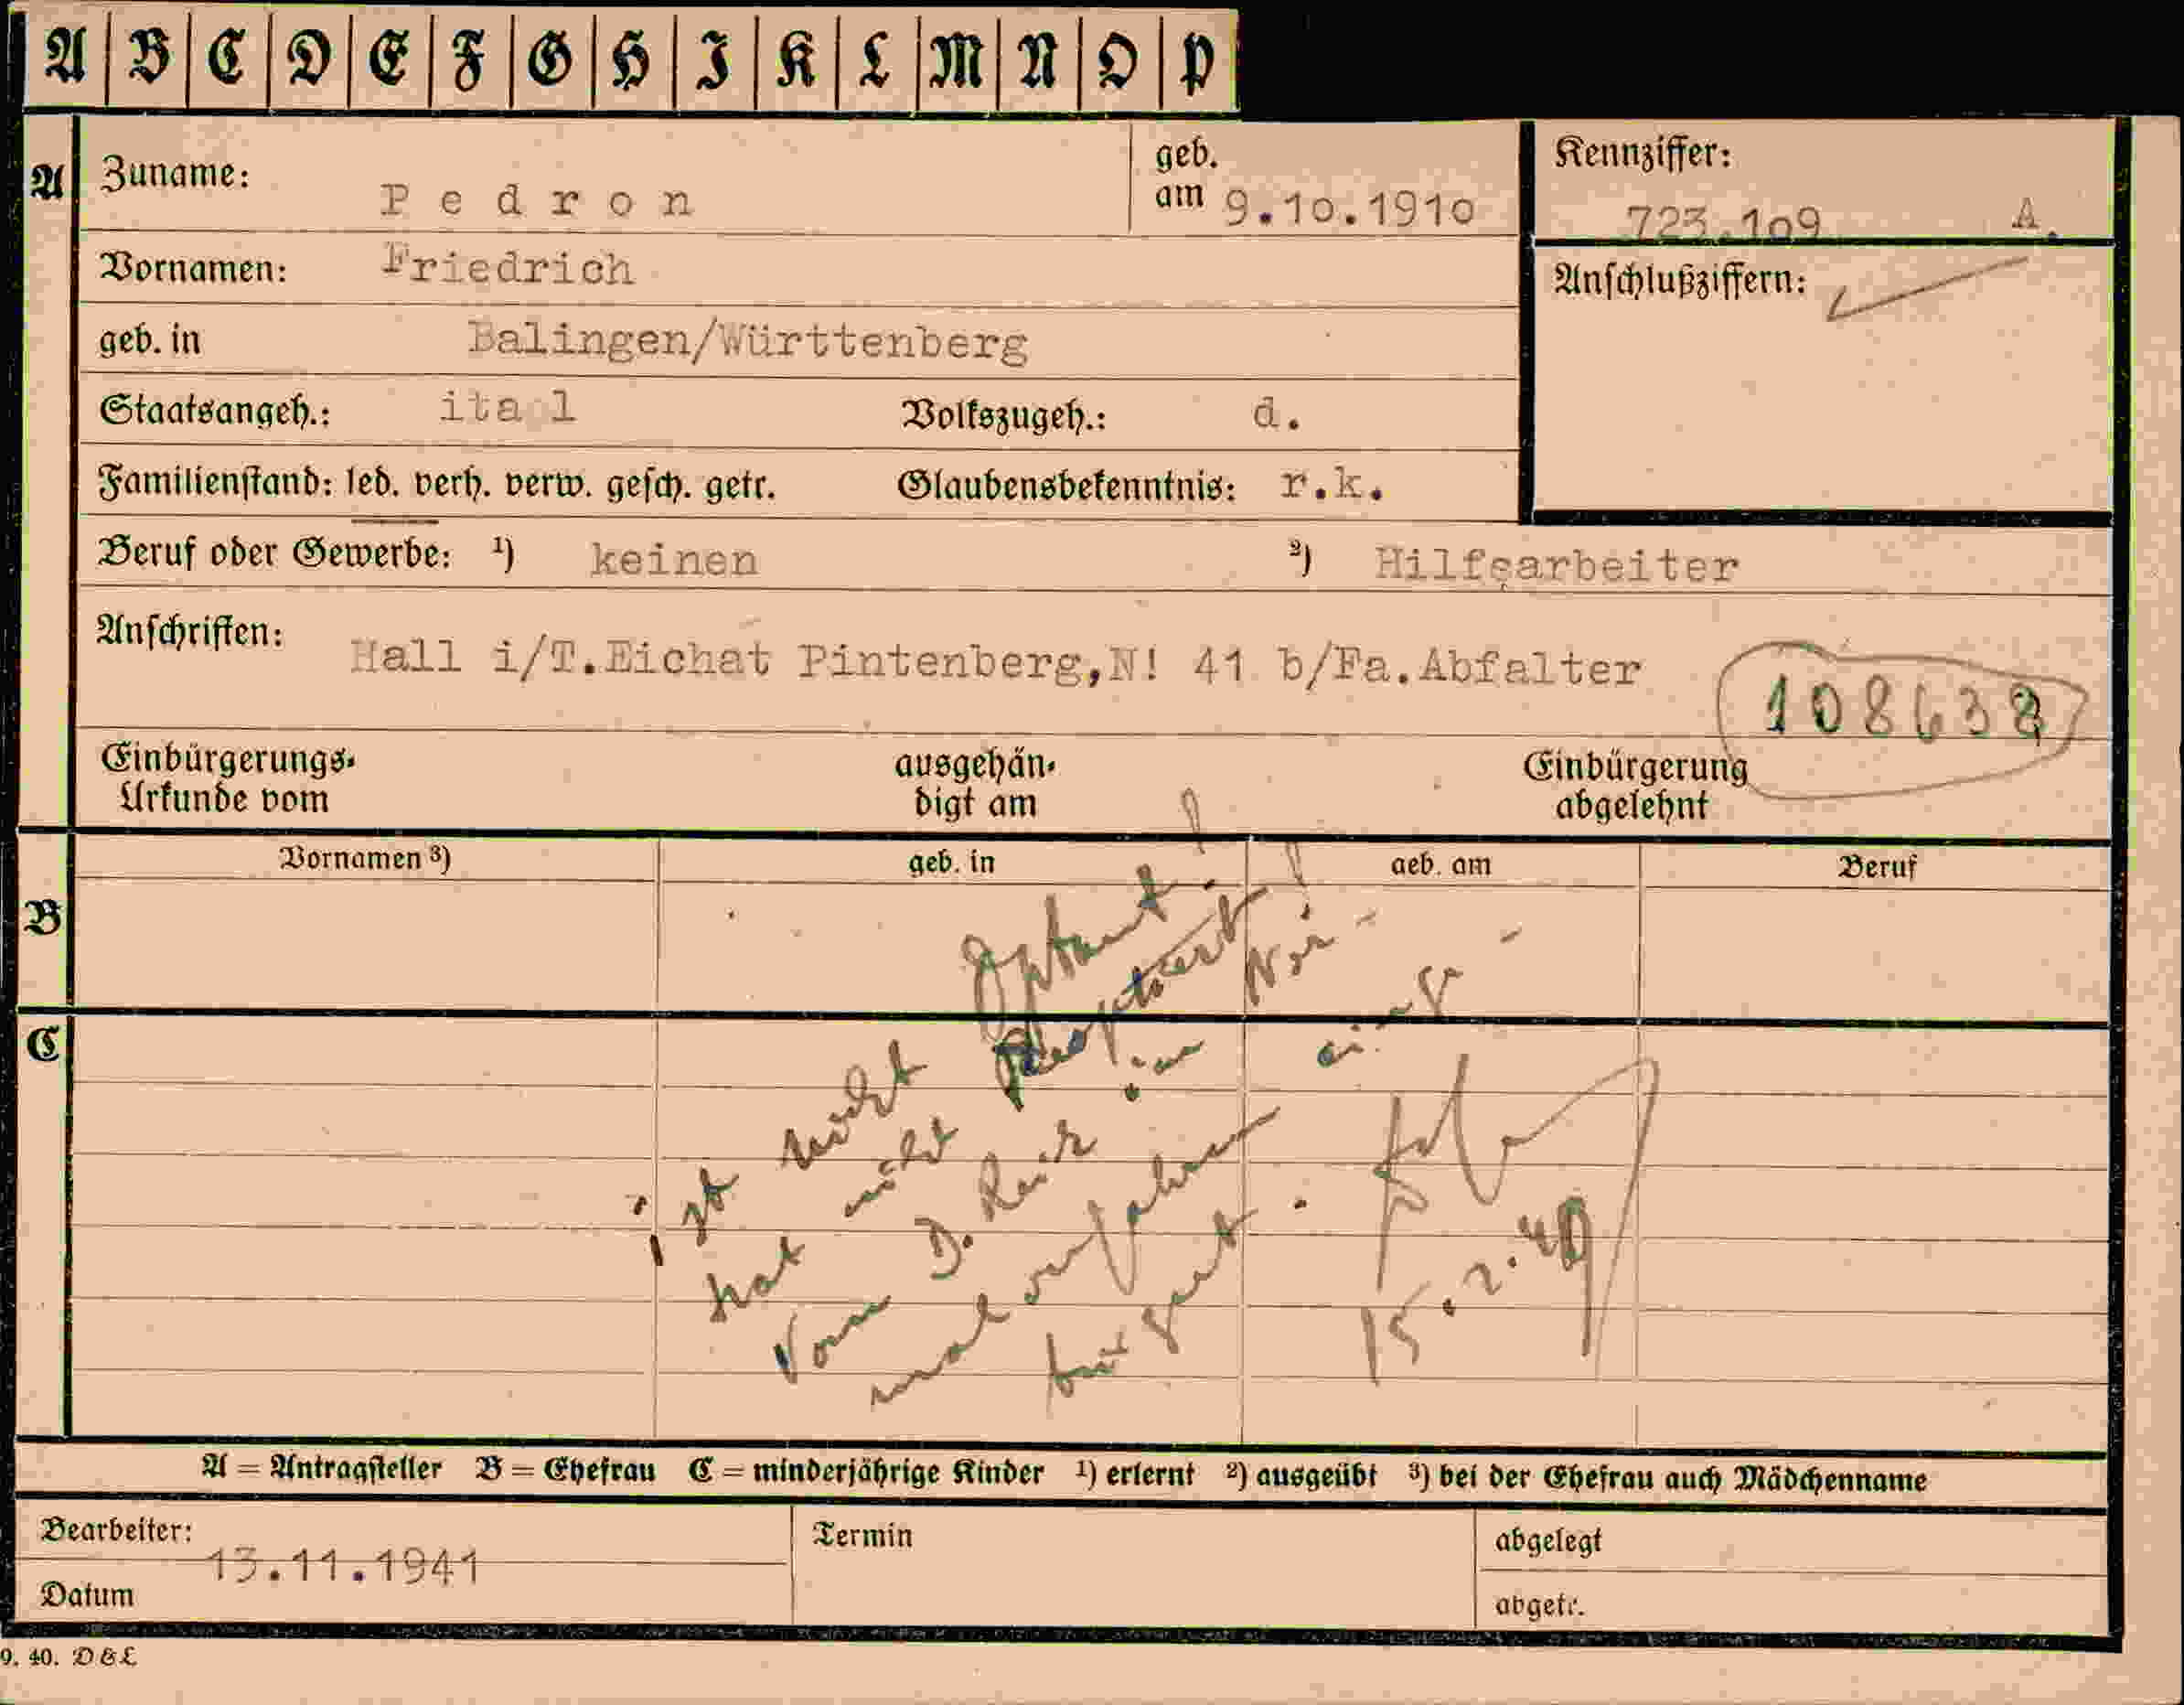 A B C D E F G H I K L M N O P
A Zuname: Pedron geb. am 9.10.1910 Kennziffer: 723.109 A.
Vornamen: Friedrich Anschlußziffern:
geb. in Balingen/Württenberg
Staatsangeh.: ital Volkszugeh.: d.
Familienstand: led. verh. verw. gesch. getr. Glaubensbekenntnis: r.k.
Beruf oder Gewerbe: 1) keinen 2) Hilfsarbeiter
Anschriften: Hall i/T.Eichat Pintenberg,N! 41 b/Fa.Abfalter
108638
Einbürgerungs-
Urkunde vom
ausgehän-
digt am
Einbürgerung
abgelehnt
B Vornamen 3) geb. in geb. am Beruf
C
ist nicht Optant!
hat nicht optiert!
Vom D. Reich
15.2.40
A = Antragsteller B = Ehefrau C = minderjährige Kinder 1) erlernt 2) ausgeübt 3) bei der Ehefrau auch Mädchenname
Bearbeiter: Termin abgelegt
13.11.1941
Datum abgetr.
9. 40. D&L